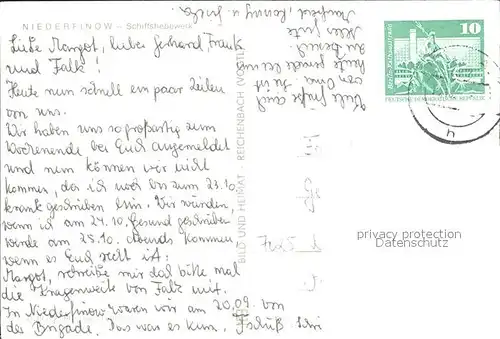 NIEDERFINOW – Schiffshebewerk
Liebe Margot, lieber Gerhard, Frank
und Falk!
Heute nun schnell ein paar Zeilen
von uns.
Wir haben uns so großartig zum
Wochenende bei Euch angemeldet
und nun können wir nicht
kommen, da ich noch bis zum 23.10.
krank geschrieben bin. Wir würden,
wenn ich am 24.10. Gesund geschrieben
werde am 25.10. abends kommen,
wenn es Euch recht ist.
Margot, schreibe mir doch bitte mal
die Kragenweite von Falk mit.
In Niederfinow waren wir am 20.09. von
der Brigade. Das war es kurz.
Viele Grüße auch
von Oma. Sie ist
heute gerade bei uns
zu Besuch.
Alles Gute
BILD UND HEIMAT REICHENBACH (VOGTL)
10
DEUTSCHE DEMOKRATISCHE REPUBLIK
privacy protection
Datenschutz